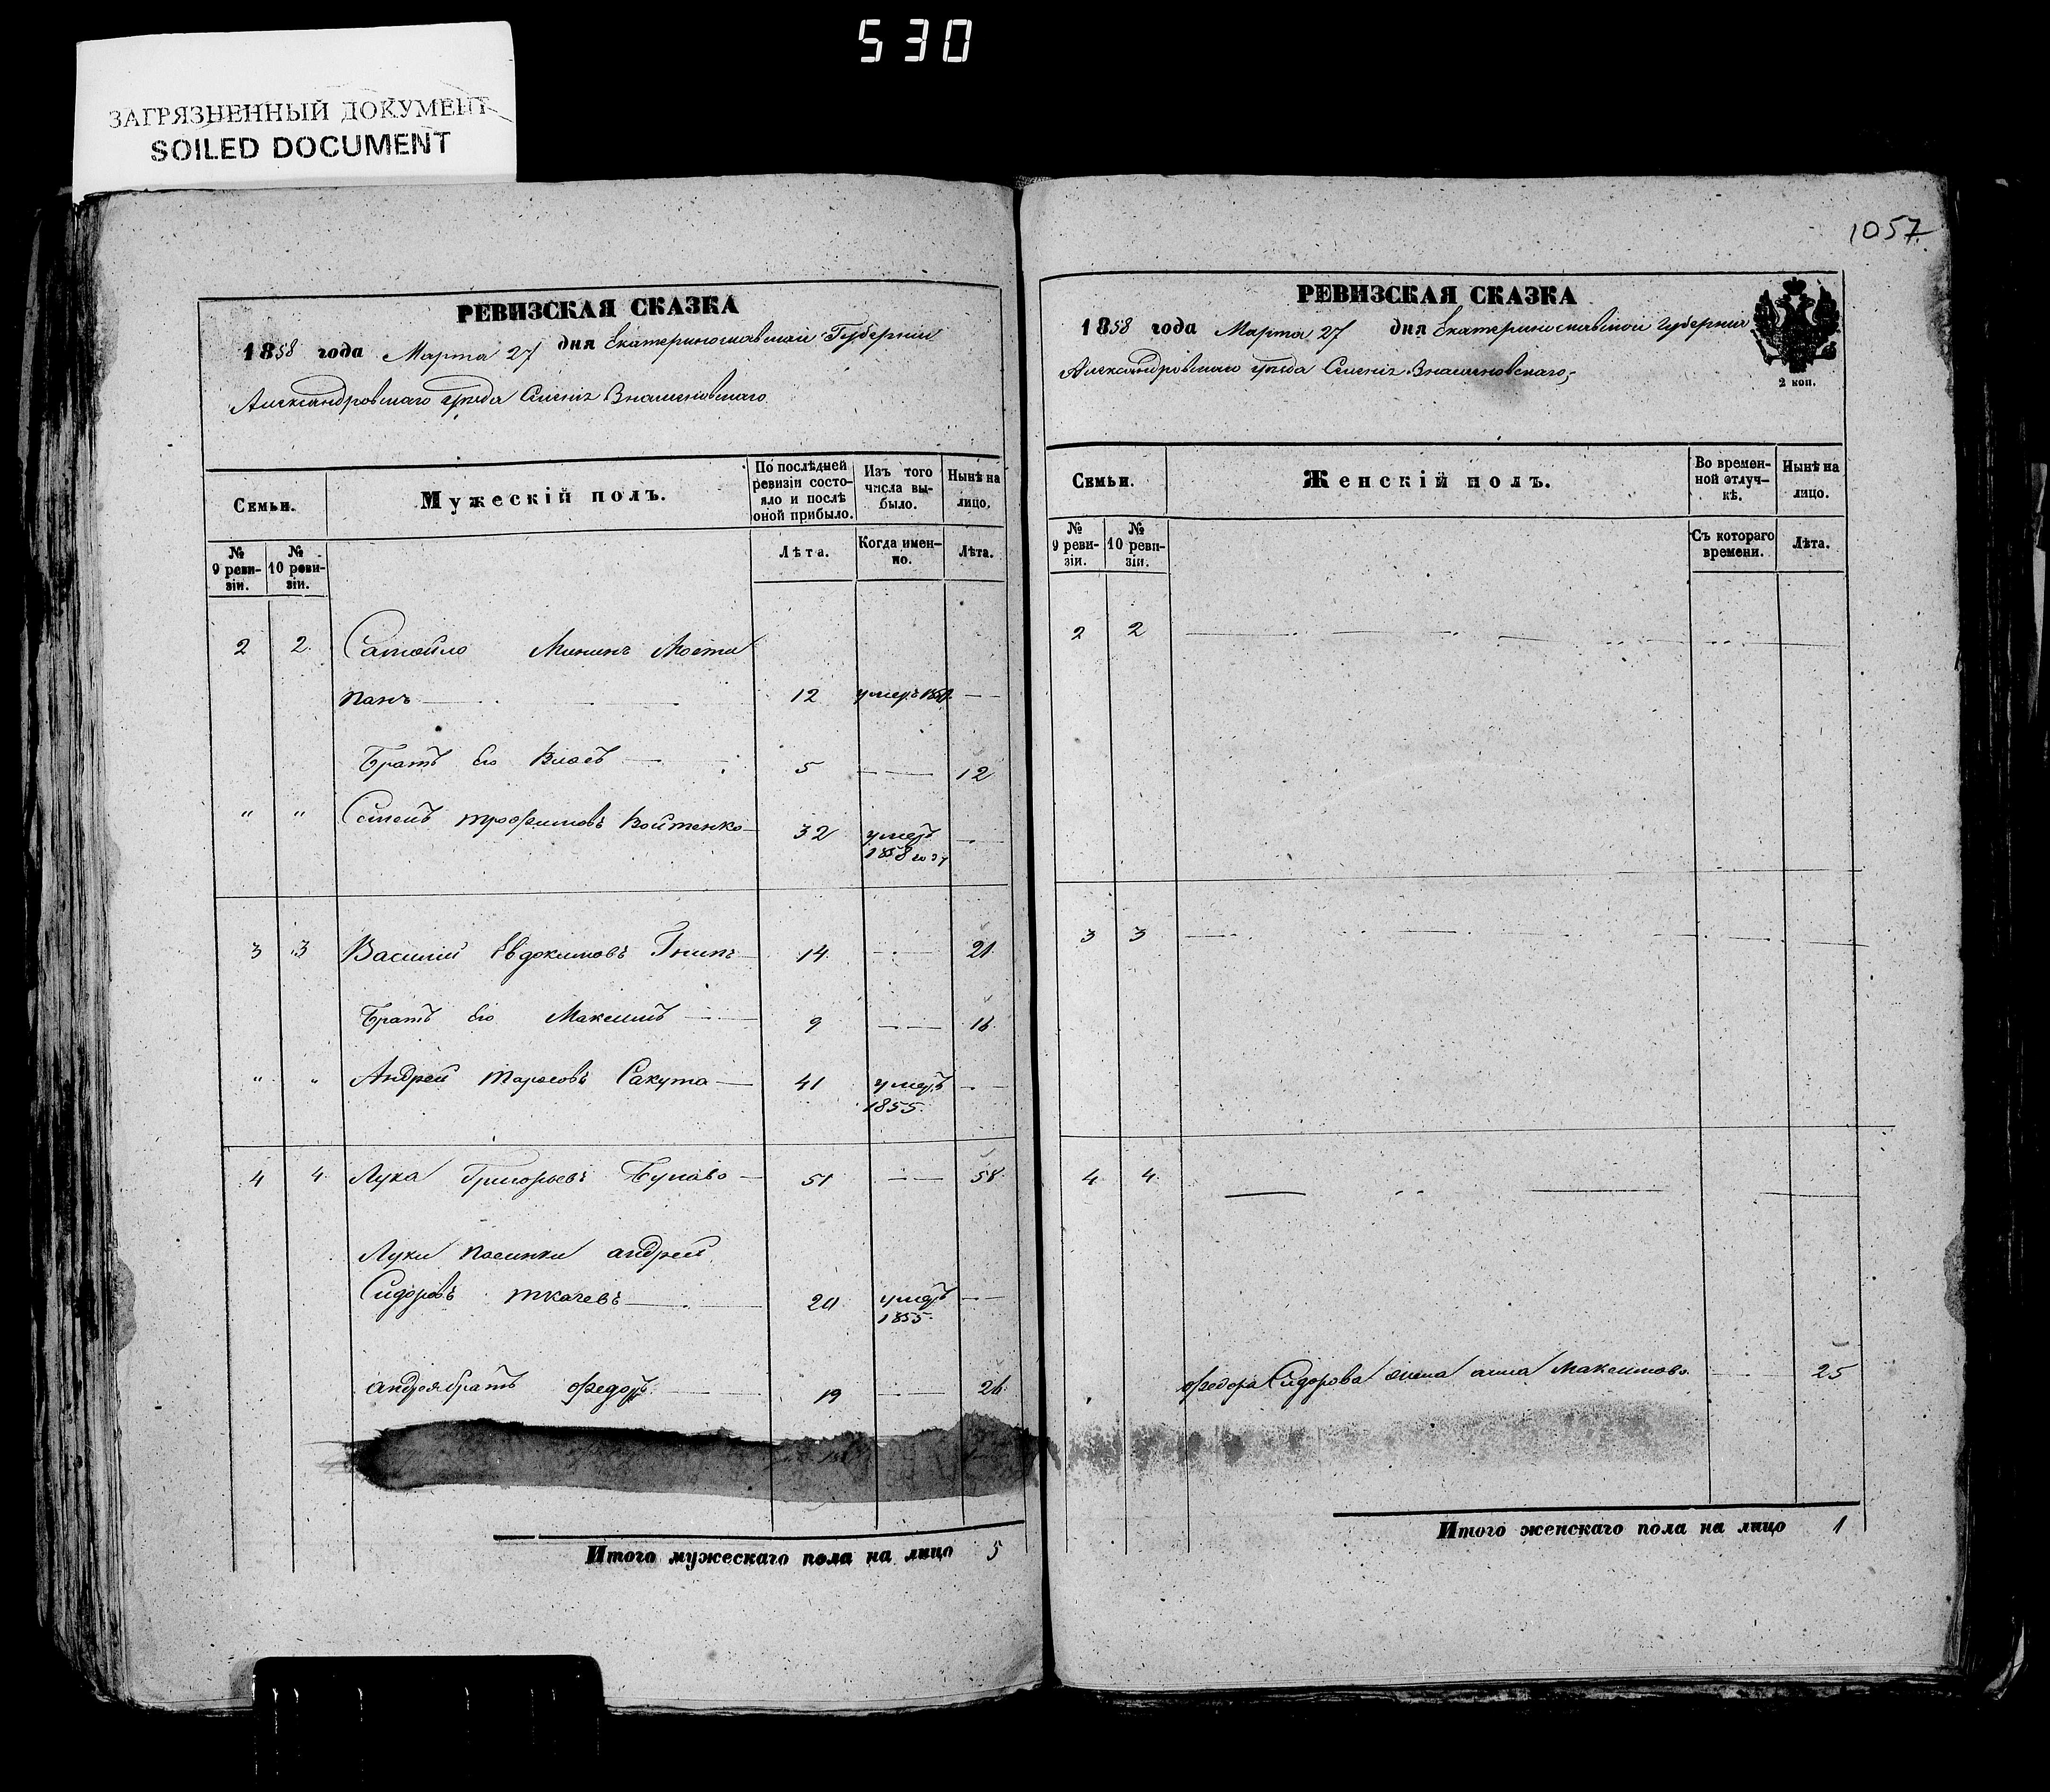 530
ЗАГРЯЗНЕННЫЙ ДОКУМЕНТ
SOILED DOCUMENT
РЕВИЗСКАЯ СКАЗКА
1858 года Марта 27 дня Екатеринославской Губернии
Александровскаго уѣзда Селенія Знаменовскаго
Семьи.
Мужескій полъ.
По послѣдней ревизіи состояло и послѣ оной прибыло.
Изъ того числа выбыло.
Нынѣ на лицо.
№ 9 ревизіи.
№ 10 ревизіи.
Лѣта.
Когда именно.
Лѣта.
2 2 Самойло Мининъ
панъ 12 умеръ
Братъ Его Власъ 5 12
" " Семенъ трофимовъ Войтенко 32 умеръ
1858
3 3 Василий Евдокимовъ 14 21
Братъ Его Максимъ 9 16
" " Андрей Тарасовъ Сакута 41 умеръ
1855.
4 4 Лука Григорьевъ 51 58
Луки пасынки андрей
Сидоровъ ткачевъ 20 умеръ
1855.
андрея братъ Федоръ 19 26
Итого мужескаго пола на лицо 5
1057
РЕВИЗСКАЯ СКАЗКА
1858 года Марта 27 дня Екатеринославской Губернии
Александровскаго уѣзда Селенія Знаменовскаго,
2 коп.
Семьи.
Женскій полъ.
Во временной отлучкѣ.
Нынѣ на лицо.
№ 9 ревизіи.
№ 10 ревизіи.
Съ котораго времени.
Лѣта.
2 2
3 3
4 4
Федора Сидорова жена анна Максимова 25
Итого женскаго пола на лицо 1